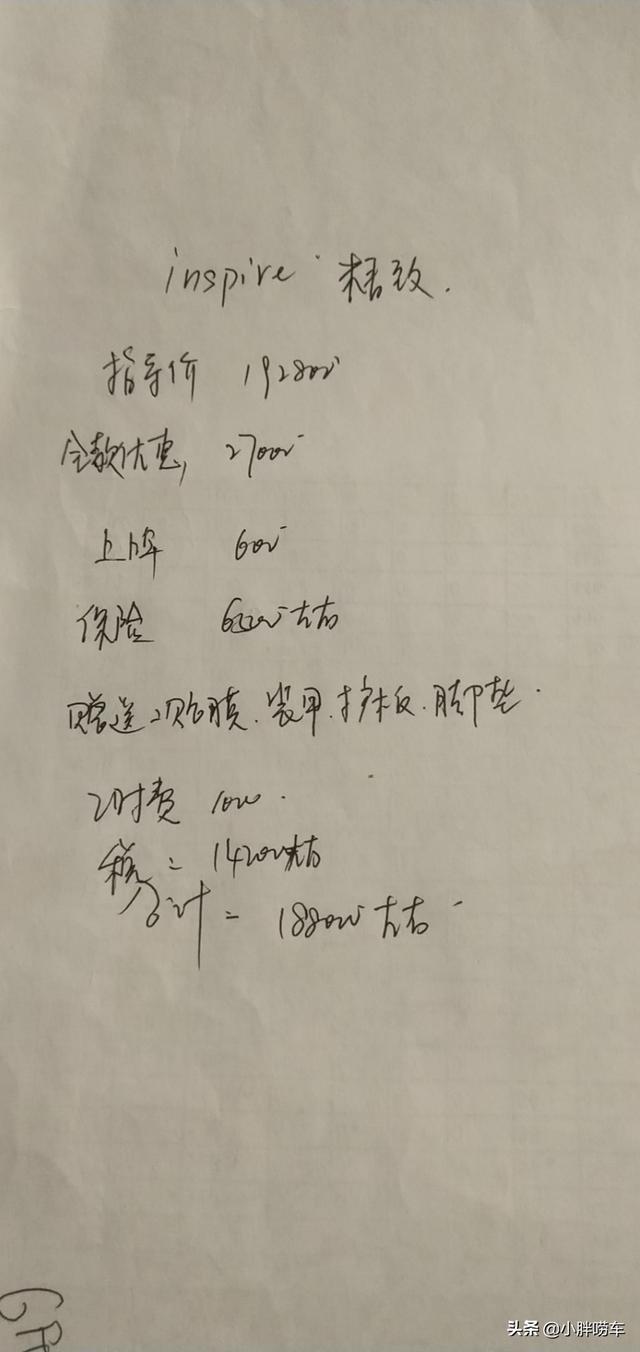 inspire 精致.
指导价 192800
全款优惠, 27000
上牌 600
保险 6200左右
赠送:贴膜.装甲.护板.脚垫.
工时费 1000.
税= 14200左右
合计= 188000左右
头条 @小胖唠车